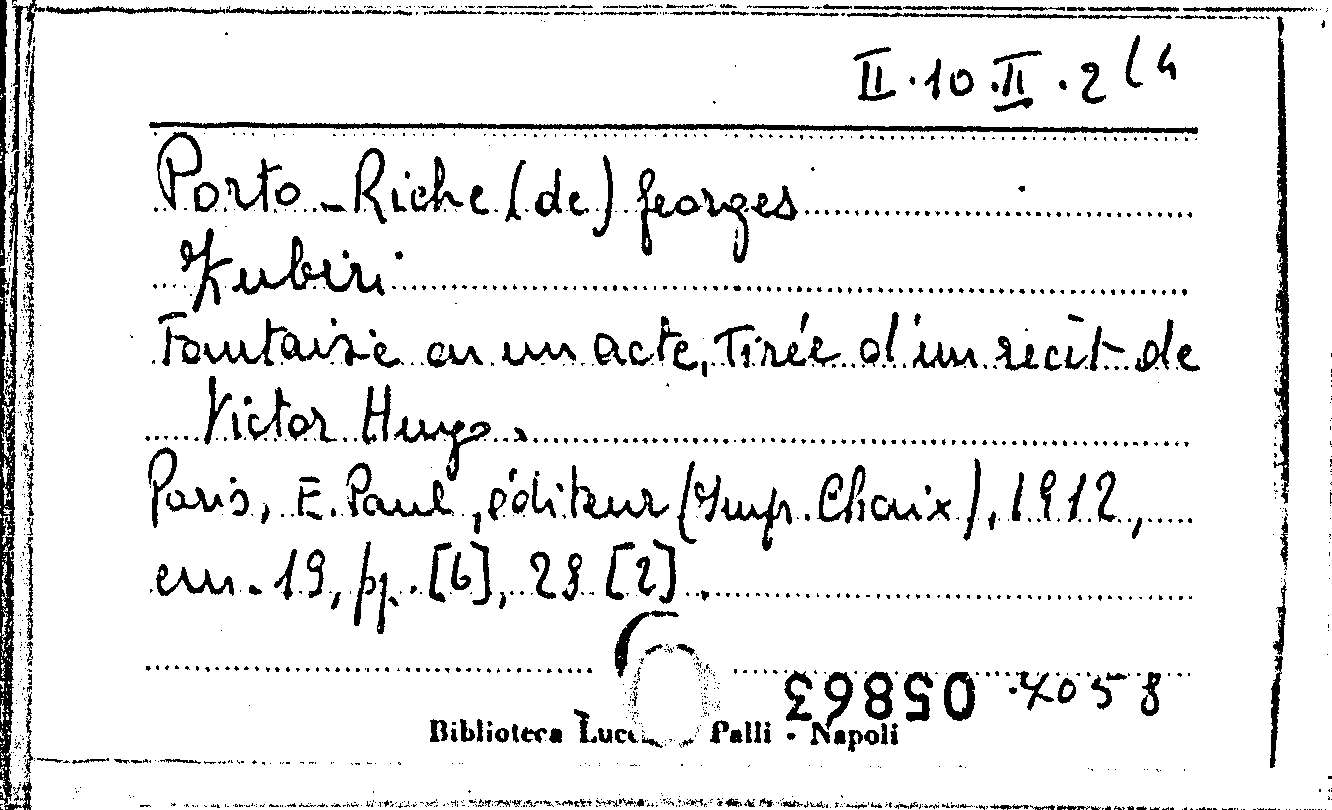 II.10.II.2(4
Porto-Riche (de) Georges
Zubiri
Fantaisie en un acte, Tirée d'un récit de
Victor Hugo.
Paris, E. Paul, éditeur (Imp. Chaix), 1912,
cm. 19, pp. [6], 29 [2].
05863 4058
Biblioteca Palli - Napoli